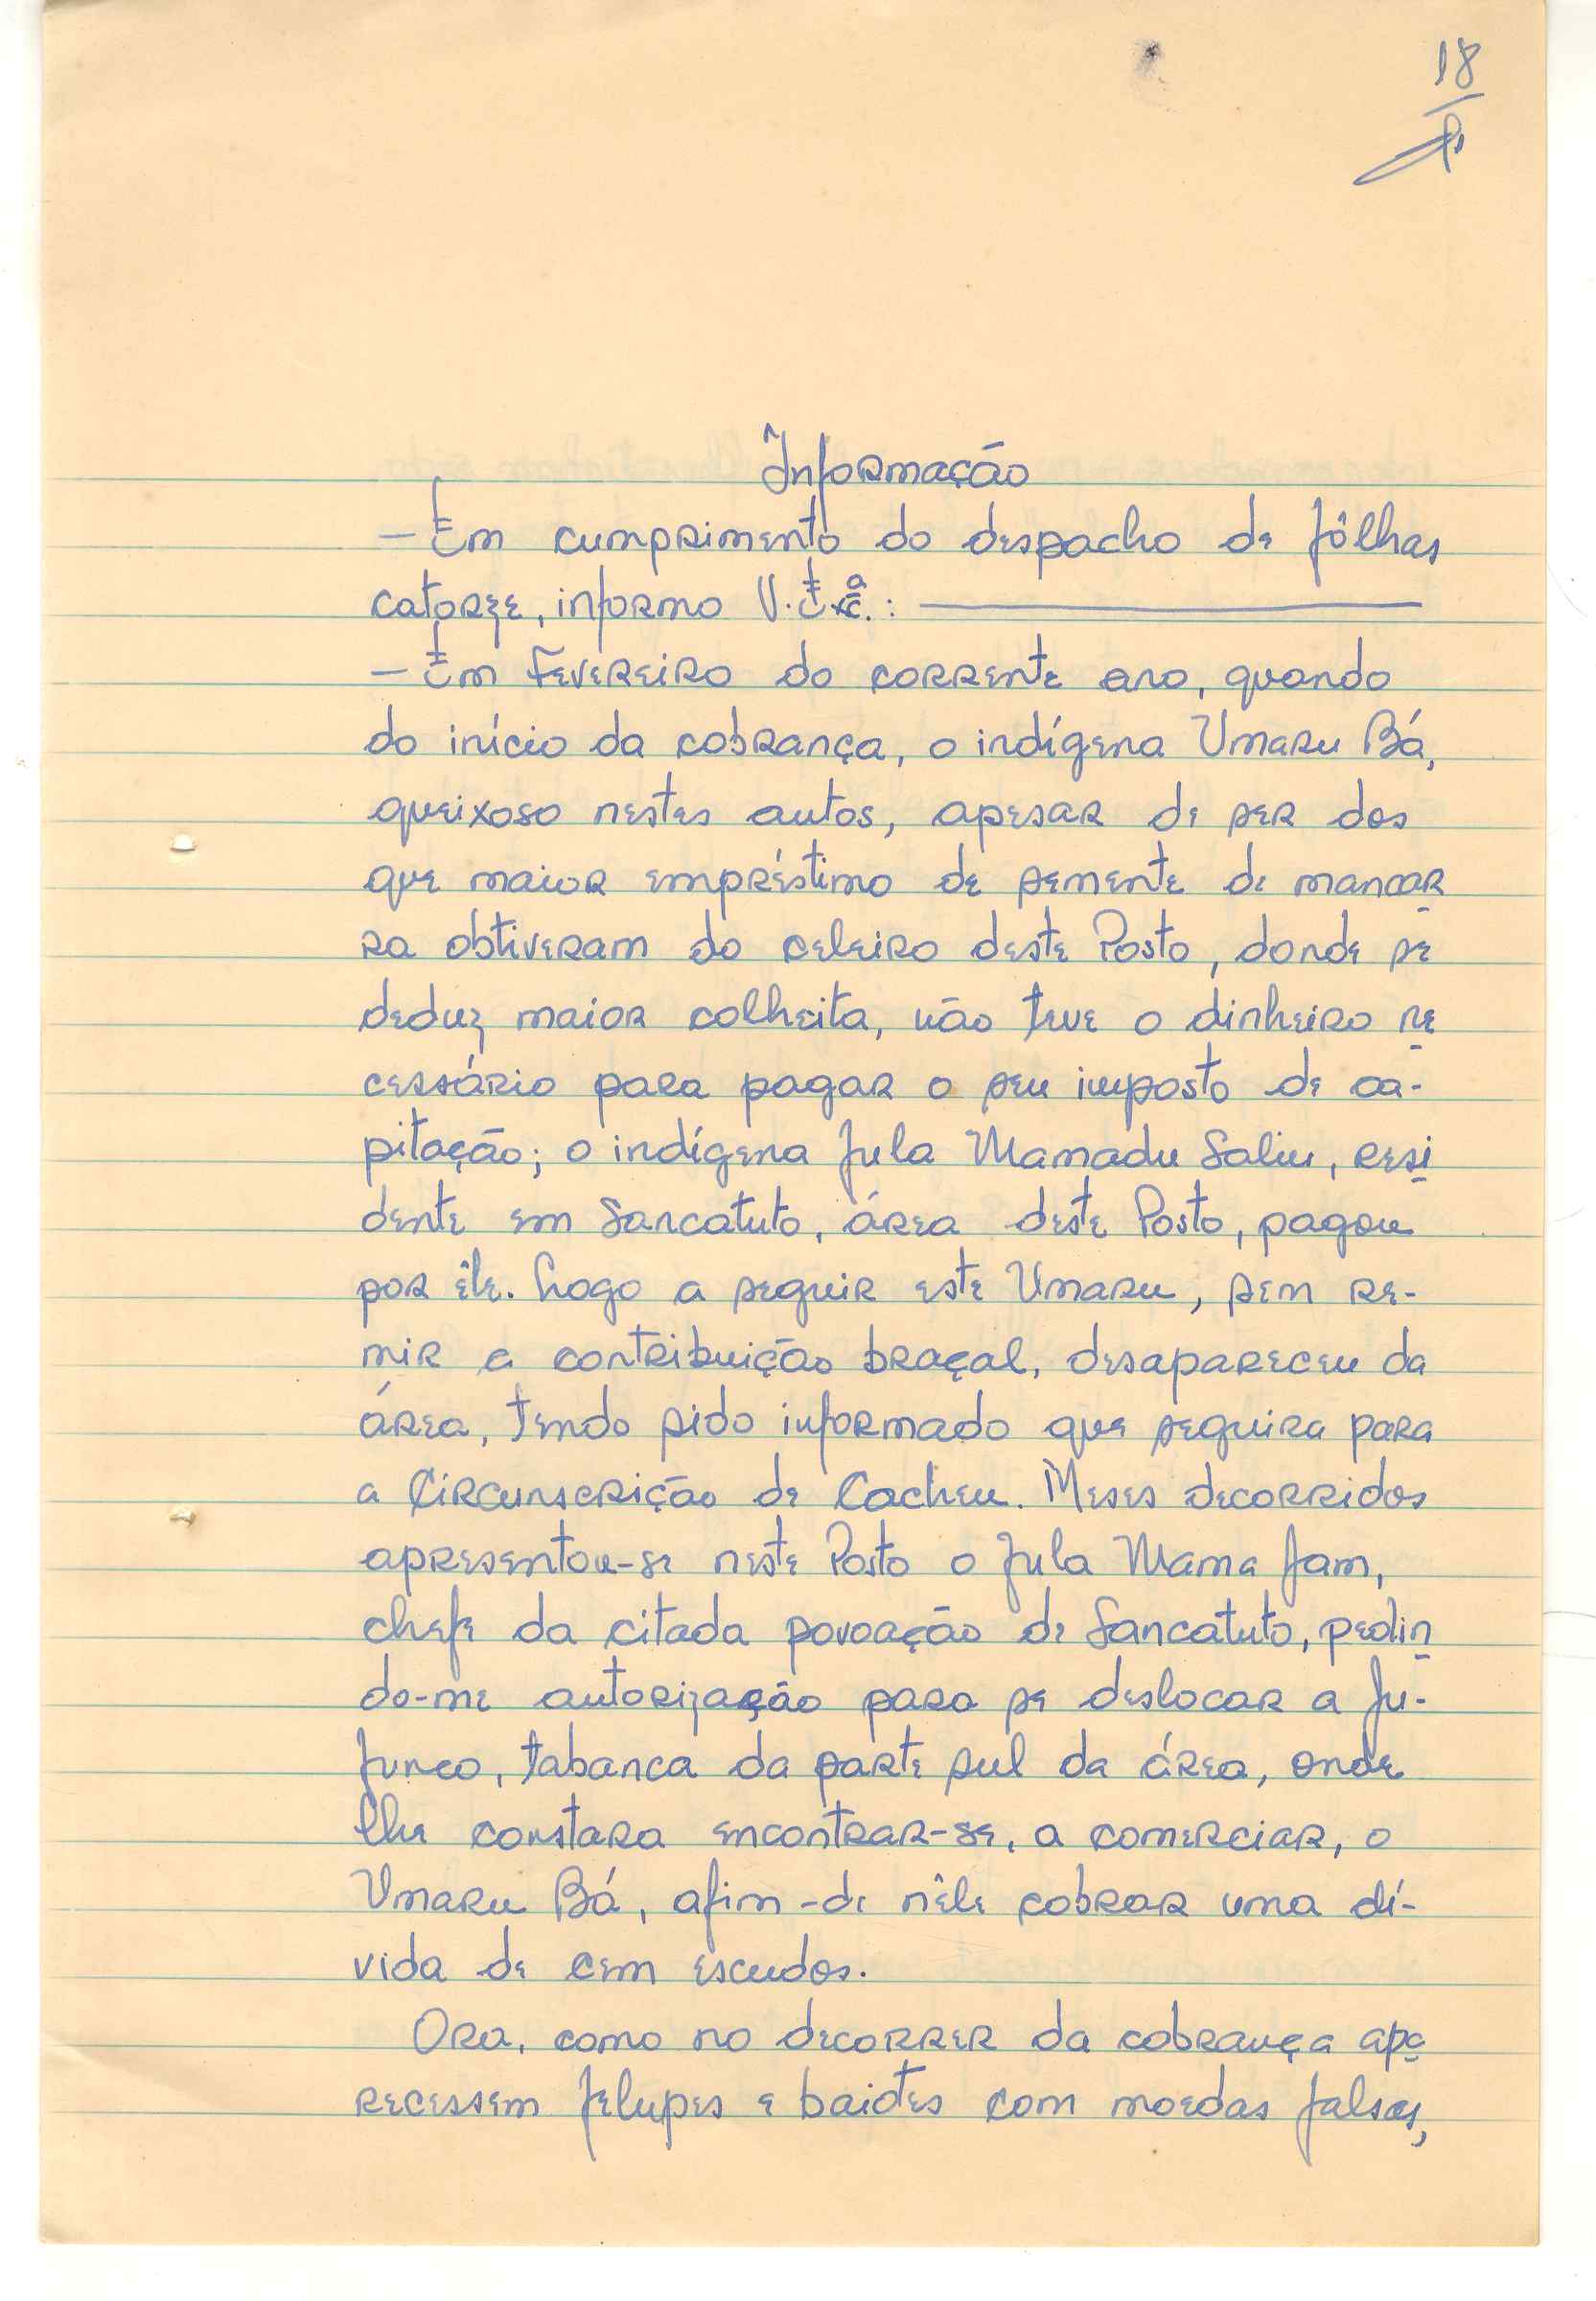 18
Informação
— Em cumprimento do despacho de fôlhas
catorze, informo V. Exª. :
— Em Fevereiro do corrente ano, quando
do início da cobrança, o indígena Umaru Bá,
queixoso nestes autos, apesar de ser dos
que maior empréstimo de semente de mancar
ra obtiveram do celeiro deste Posto, donde se
deduz maior colheita, não teve o dinheiro ne
cessário para pagar o seu imposto de ca-
pitação; o indígena fula Mamadu Saliu, resi
dente em Sancatuto, área deste Posto, pagou
por êle. Logo a seguir este Umaru, sem re-
mir a contribuição braçal, desapareceu da
área, tendo sido informado que seguira para
a Circunscrição de Cacheu. Meses decorridos
apresentou-se neste Posto o fula Mama Jam,
chefe da citada povoação de Sancatuto, pedin
do-me autorização para se deslocar a Ju-
funco, tabanca da parte sul da área, onde
lhe constara encontrar-se, a comerciar, o
Umaru Bá, afim-de nêle cobrar uma dí-
vida de cem escudos.
Ora, como no decorrer da cobrança apa
recessem felupes e baiotes com moedas falsas,